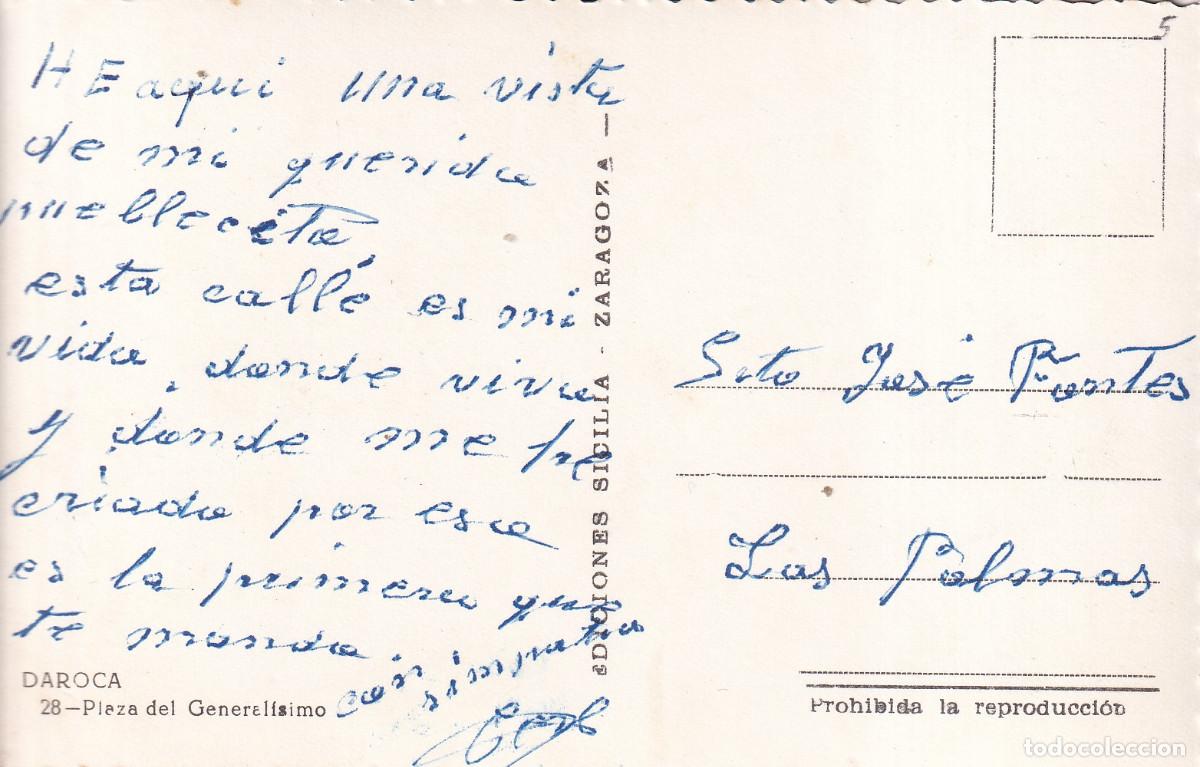 HE aqui una vista
de mi querida
puebleecita
esta callé es mi
vida, donde vivo
y donde me he
criado por eso
es la primera que
te mando.
con simpatia
DAROCA
28—Plaza del Generalísimo
EDICIONES SICILIA - ZARAGOZA —
5
Srto José Fontes
Las Palmas
Prohibida la reproducción
todocoleccion